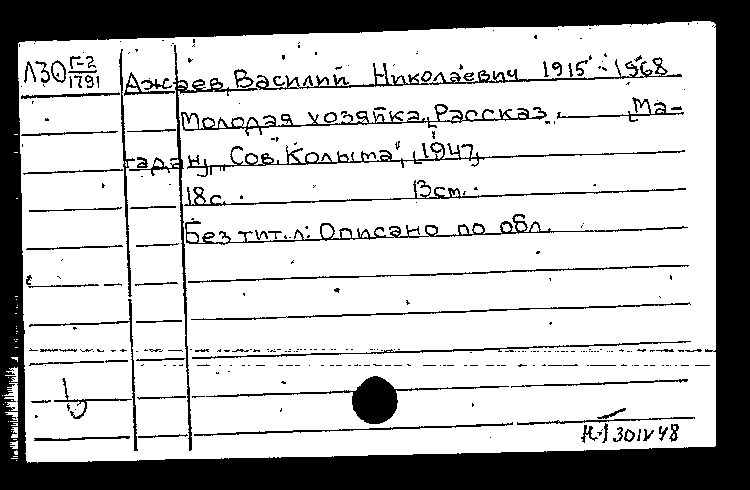 Л30 Г-2/1791
Ажаев, Василий Николаевич 1915 - 1968
Молодая хозяйка, Рассказ. [Ма-
гадан], "Сов. Колыма", [1947]
18с. 13см.
Без тит. л: Описано по обл.
30 IV 48